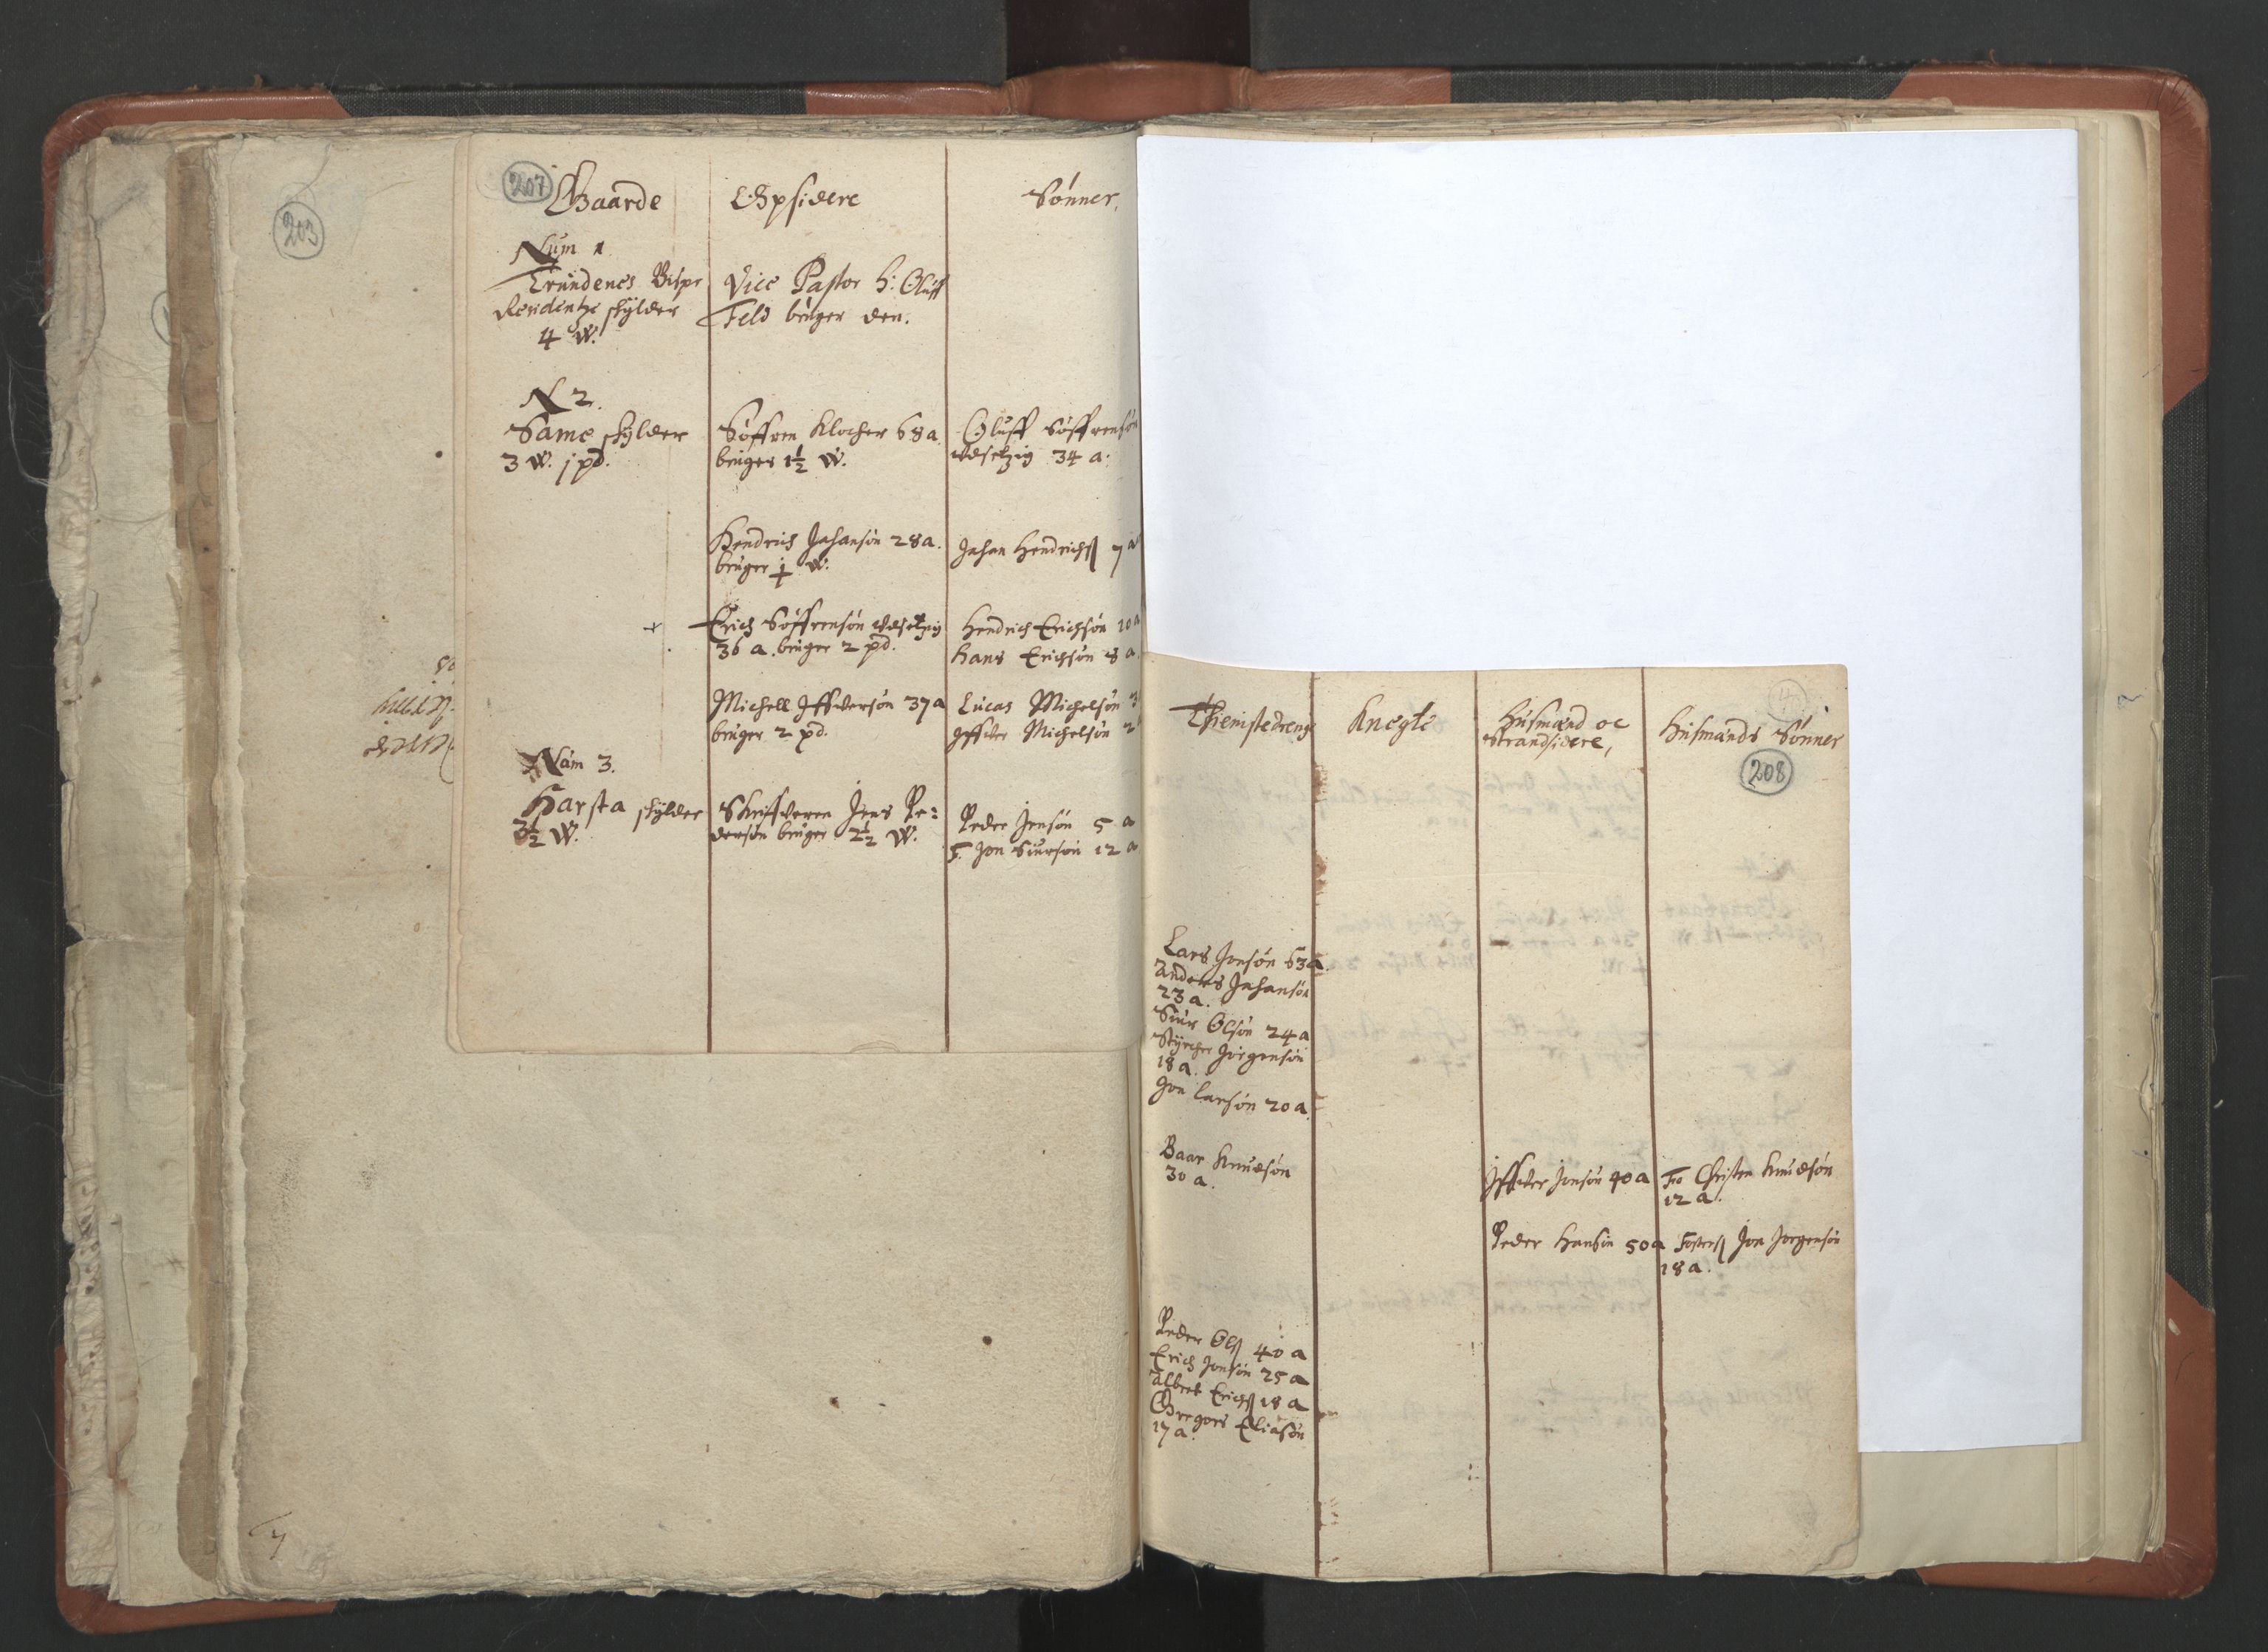 203
207
Gaarde
Opsidere
Sønner,
Num 1
Trundenes Bispe
Residentze skylder
4 W.
Vice Pastor H: Oluff
Feld bruger den.
N 2.
Same skylder
3 W. j pd.
Søffren Klocher 68 a.
bruger 1½ W.
Oluff Søffrensøn
vdsetzig 34 a.
Hendrich Jahansøn 28 a.
bruger j W.
Jahan Hendrichß 7 a
Erich Søffrensøn vdsetzig
36 a. bruger 2 pd.
Hendrich Erichsøn 10 a
Hans Erichsøn 8 a.
Michell Jffversøn 37 a
bruger 2 pd.
Lucas Michelsøn 3
Jffver Michelsøn 2
Num 3.
Harsta skylder
3½ W.
Skriffveren Jens Pe:
dersøn bruger 2½ W.
Peder Jensøn 5 a
S. Jon Siursøn 12 a
Thienistedreng
Knegte
Husmænd oc
Strandsidere,
Husmænds Sønner
208
Lars Jonsøn 63 a.
Anders Jahansøn
23 a.
Siur Olsøn 24 a
Styrcher Jørgensøn
18 a.
Jon Larsøn 20 a.
Baar Knudsøn
30 a.
Jffver Jonsøn 40 a
Fo Christen Knudsøn
12 a.
Peder Hansøn 50 a
Fosterß Jon Jørgensøn
18 a.
Peder Olß 40 a
Erich Jonsøn 25 a
Albret Erichß 18 a
Gregers Eliasøn
17 a.